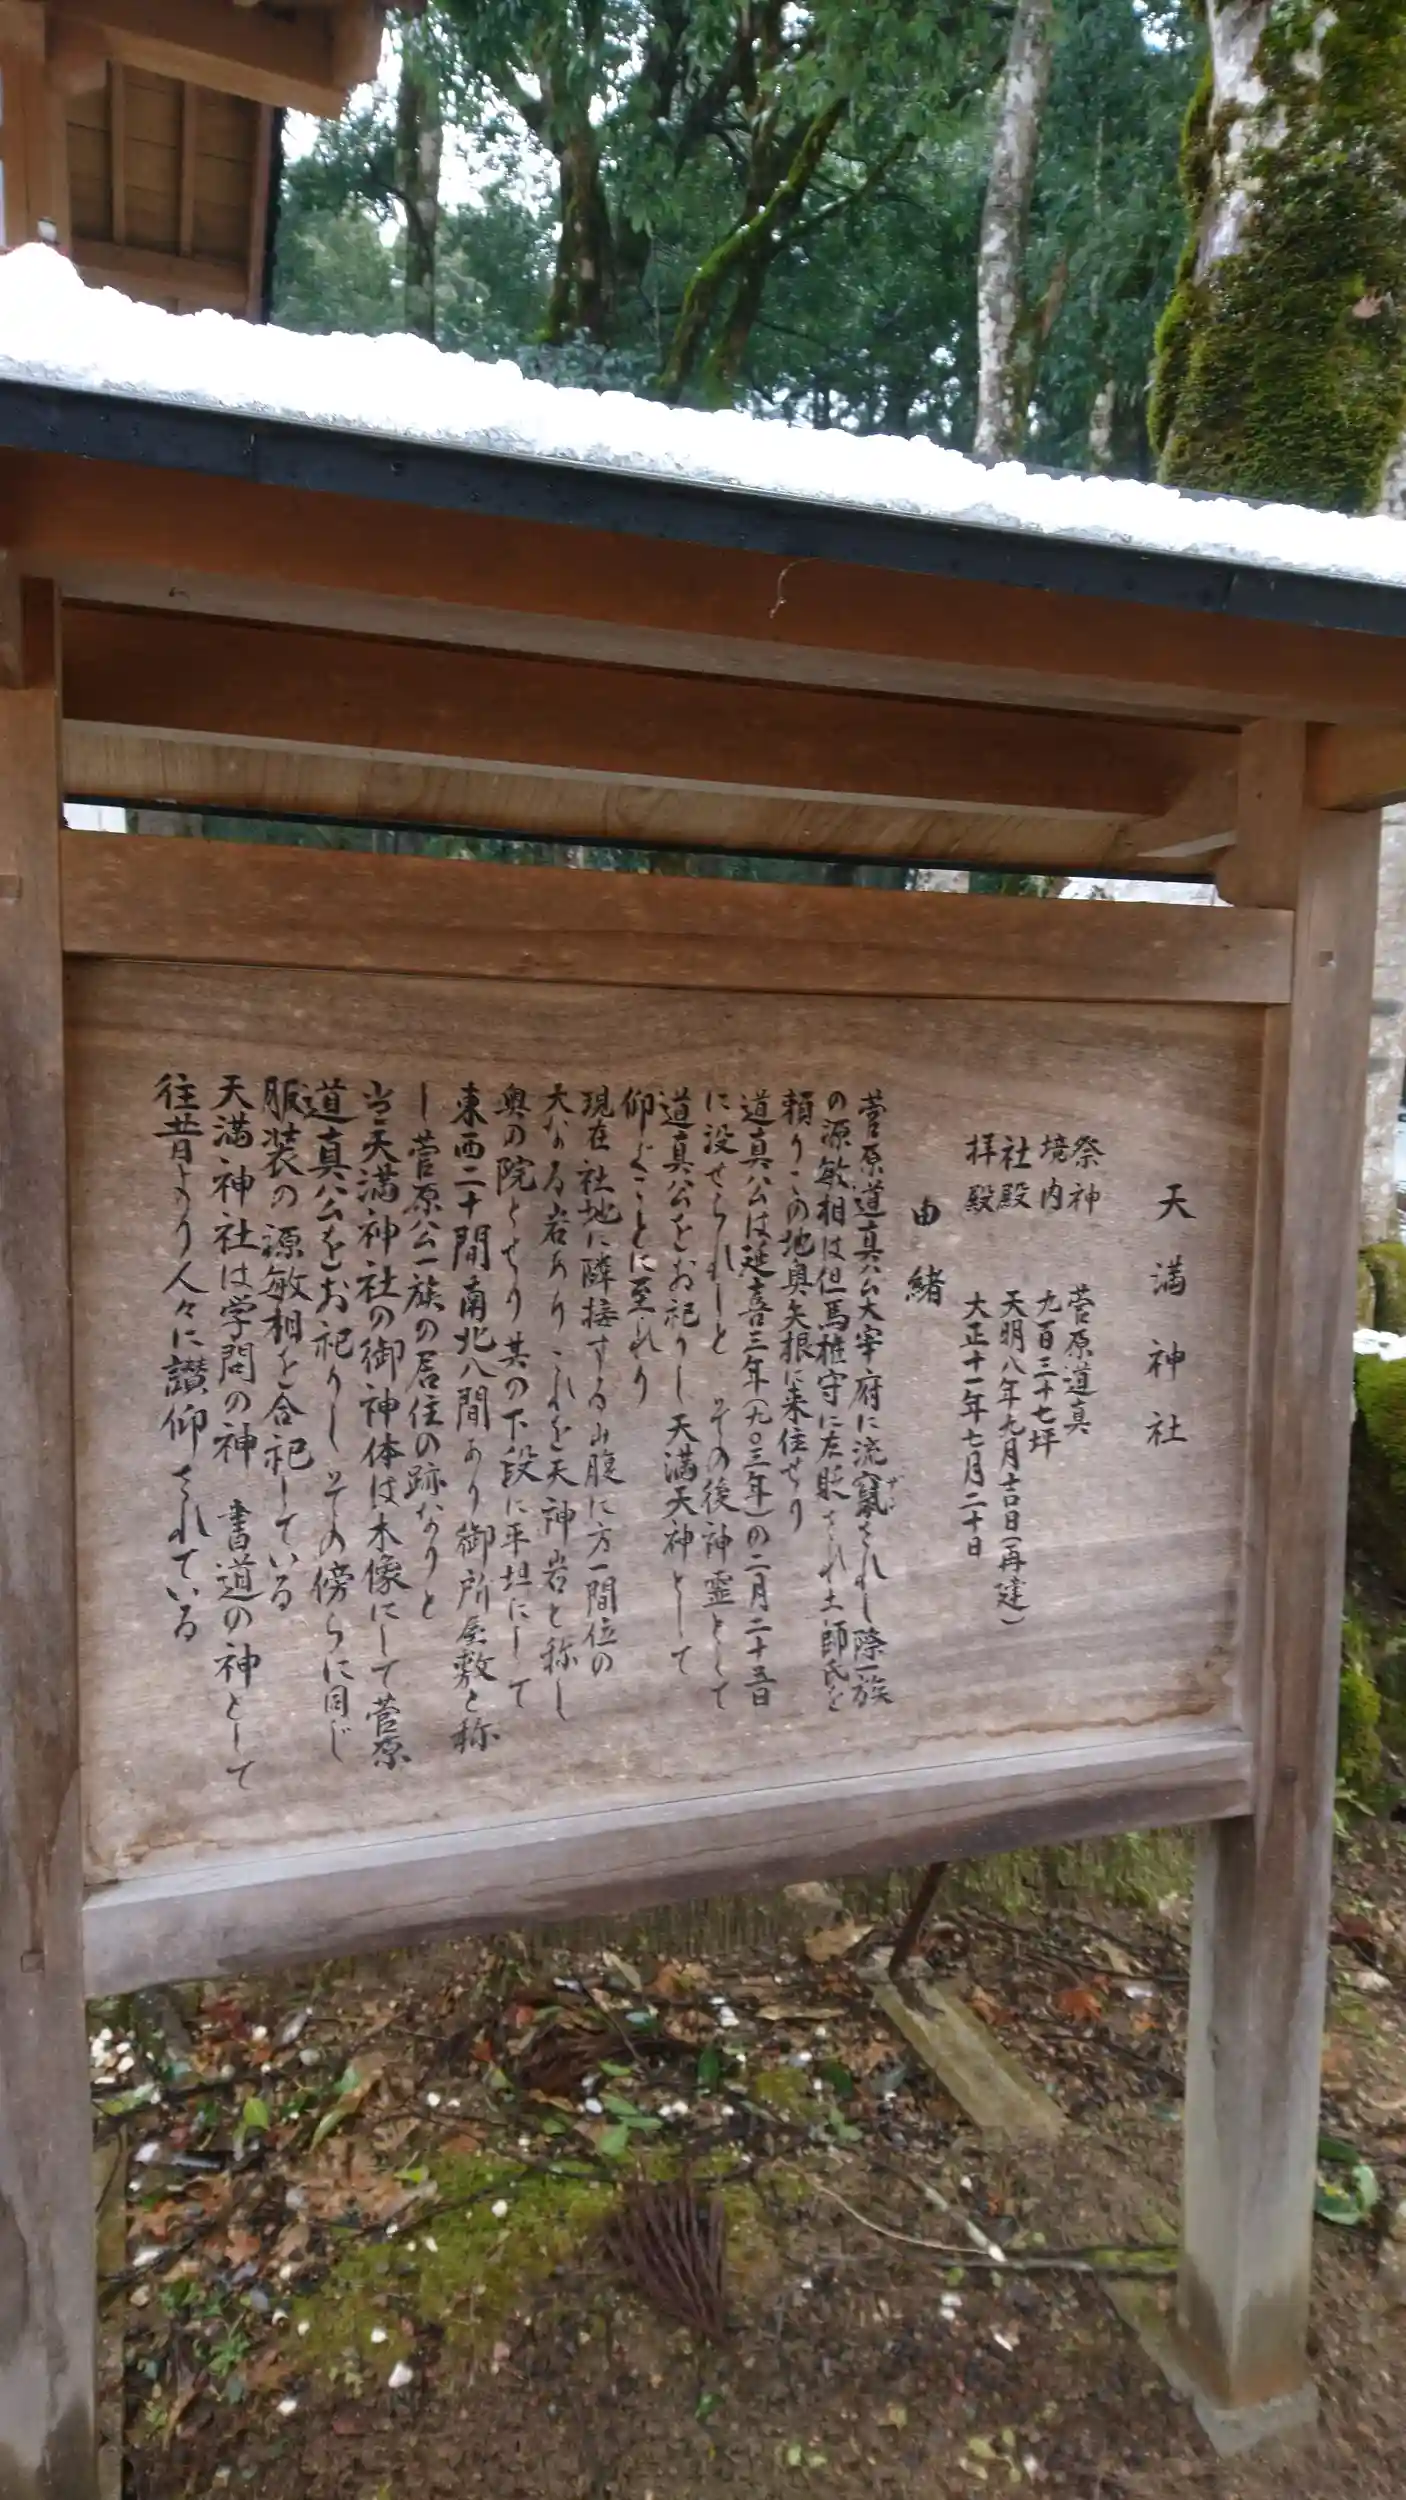 天満神社
祭神 菅原道真
境内 九百三十七坪
社殿 天明八年九月吉日(再建)
拝殿 大正十一年七月二十日
由緒
菅原道真公大宰府に流竄されし際一族
の源敏相は但馬権守に左貶され土師氏を
頼りこの地奥矢根に来住せり
道真公は延喜三年(九〇三年)の二月二十五日
に没せられしと その後神霊として
道真公をお祀りし天満天神として
仰ぐことに至れり
現在社地に隣接する山腹に方一間位の
大なる岩ありこれを天神岩と称し
奥の院とせり其の下段に平坦にして
東西二十間南北八間あり御所屋敷と称
し菅原公一族の居住の跡なりと
当天満神社の御神体は木像にして菅原
道真公をお祀りしその傍らに同じ
服装の源敏相を合祀している
天満神社は学問の神 書道の神として
往昔より人々に讃仰されている